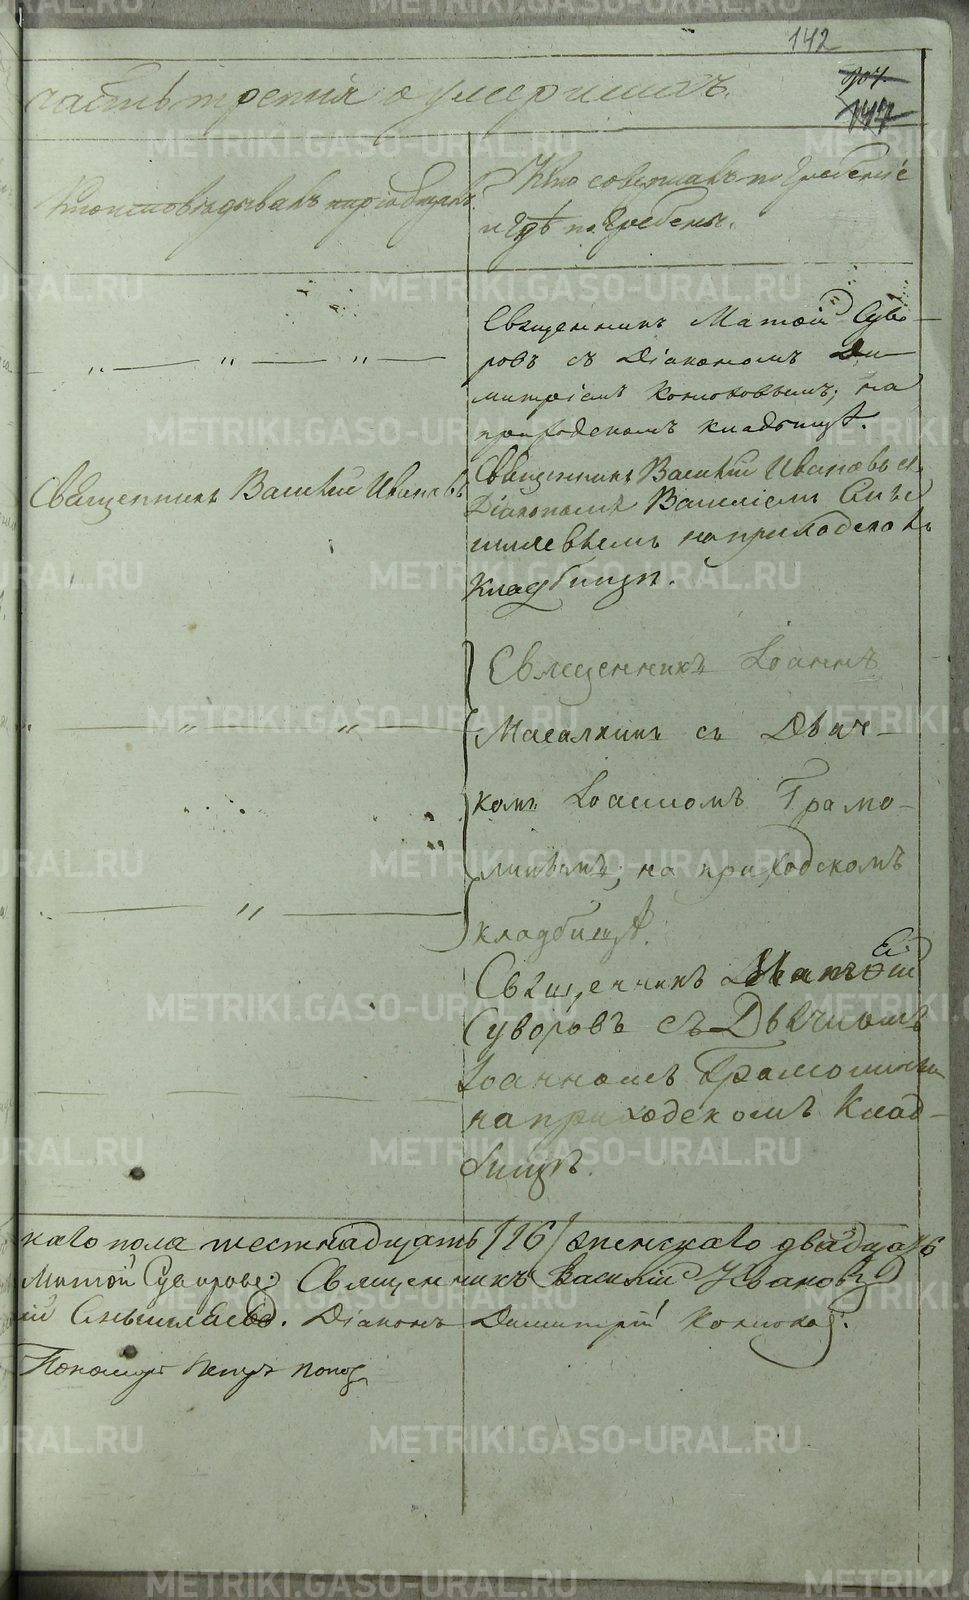 142
часть третія о умершихъ.
907.
147
Кто исповѣдывалъ и пріобщалъ.
Кто совершалъ погребеніе
и гдѣ погребены.
Священникъ Матѳій Суво-
ровъ съ Діакономъ Ди-
митріемъ Конюховымъ; на
приходскомъ кладбищѣ.
Священникъ Василій Ивановъ
Священникъ Василій Ивановъ съ
Діакономъ Василіемъ
на приходскомъ
кладбищѣ.
Священникъ Іоаннъ
Масалкинъ съ Дьяч-
комъ Іоанномъ Грамо-
линымъ; на приходскомъ
кладбищѣ.
Священникъ Матѳей
Суворовъ съ Дьячкомъ
Іоанномъ Грамолинымъ
на приходскомъ Клад-
бищѣ.
каго пола шестнадцать /16/ женскаго двадцать
Матѳій Суворовъ; Священникъ Василій Ивановъ
ій Діаконъ Димитрій Конюховъ.
Пономарь Петръ Поповъ
METRIKI.GASO-URAL.RU